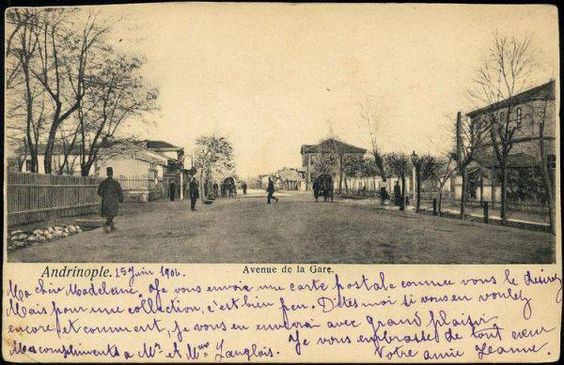 Andrinople. 15 Juin 1906.
Avenue de la Gare.
Ma chère Madeleine, Je vous envoie une carte postale comme vous le désirez
Mais pour une collection, c'est bien peu. Dites moi si vous en voulez
encore et comment, je vous en enverrai avec grand plaisir
Mes compliments a Mr et Mme Langlois. Je vous embrasse de tout cœur
Votre amie Jeanne.